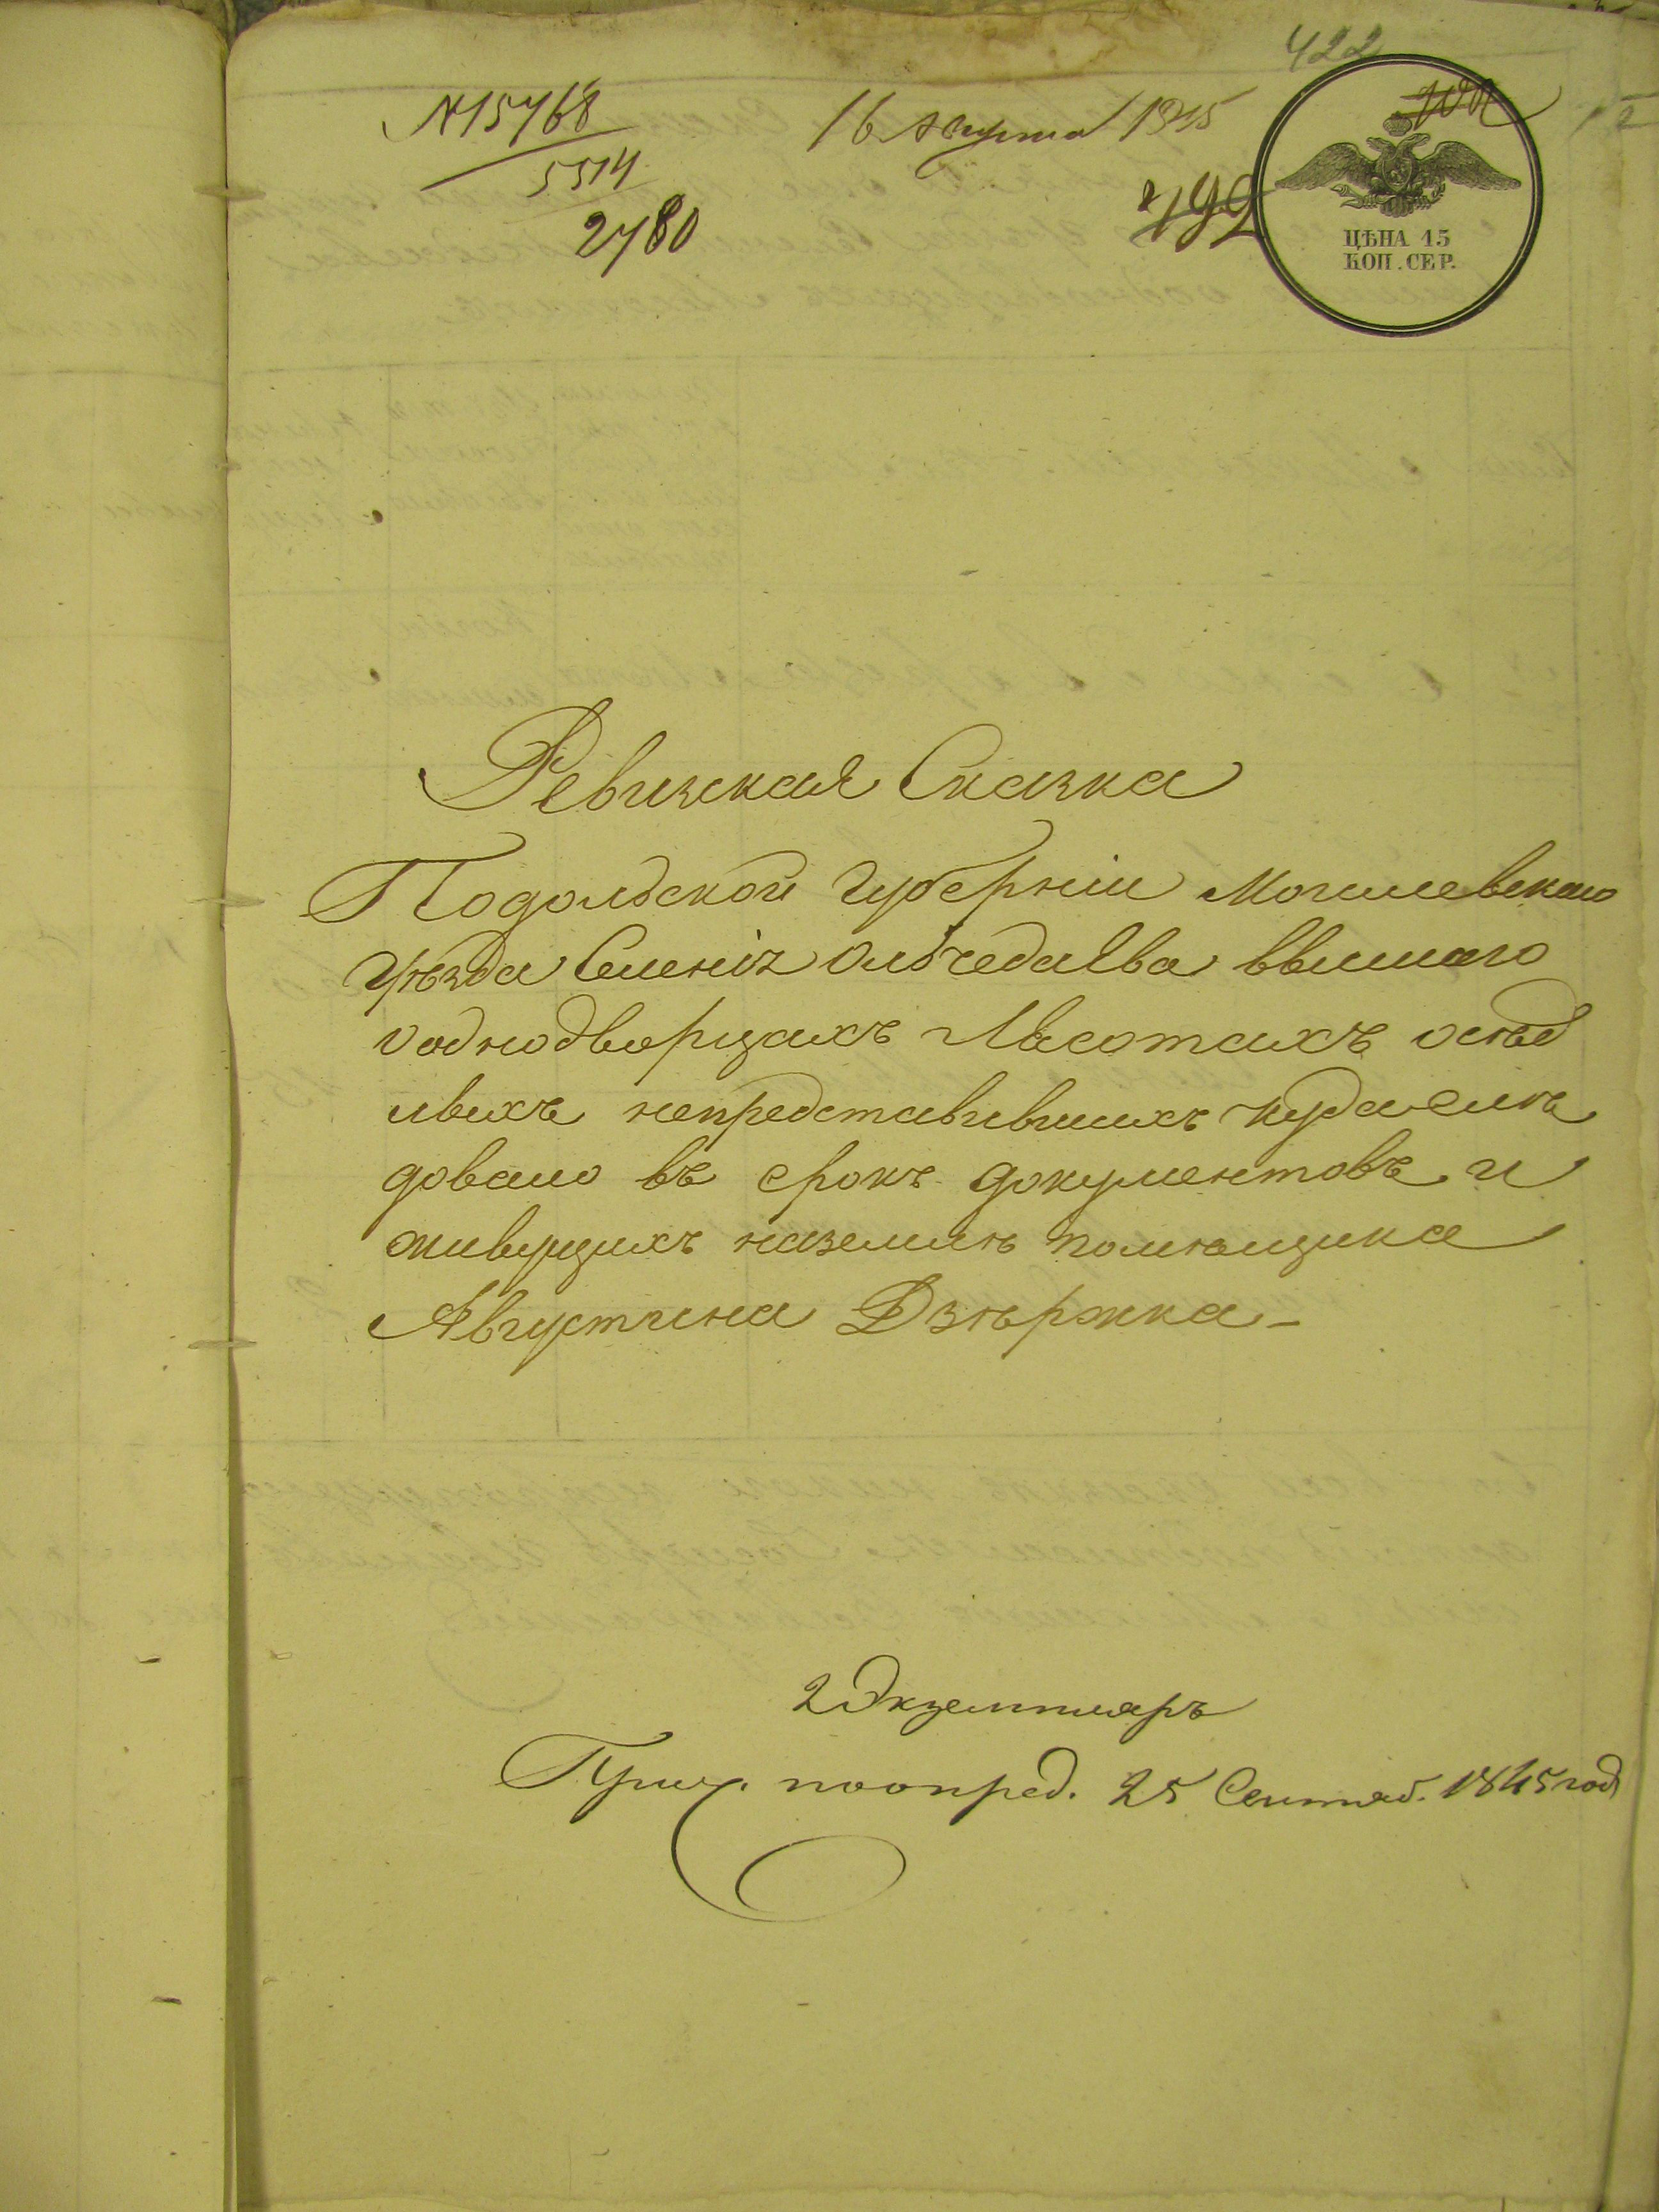 422
N 15768
16 Августа 1845
5514
2780
492
ЦѢНА 15
КОП. СЕР.
Ревизская Сказка
Подольской Губерніи Могилевскаго
уѣзда Селенія Ольчедаева
о однодворцахъ Лясотахъ осѣд
лыхъ непредставившихъ куда слѣ
довало въ срокъ документовъ и
живущихъ на землѣ помѣщика
Августина Дзѣржка
2 Экземпляръ
поопред. 25 Сентяб. 1845 год